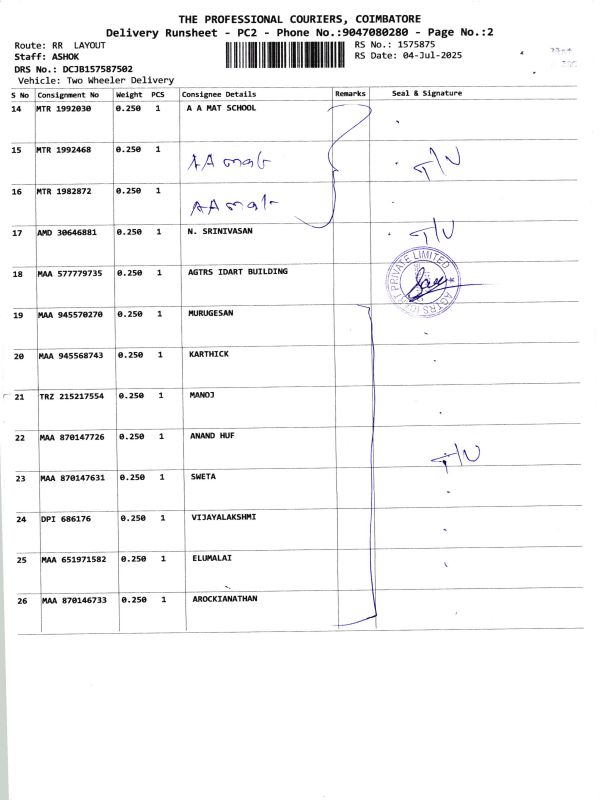 THE PROFESSIONAL COURIERS, COIMBATORE
Delivery Runsheet - PC2 - Phone No.:9047080280 - Page No.:2
Route: RR LAYOUT
RS No.: 1575875
Staff: ASHOK
RS Date: 04-Jul-2025
DRS No.: DCJB157587502
Vehicle: Two Wheeler Delivery
S No Consignment No Weight PCS Consignee Details Remarks Seal & Signature
14 MTR 1992030 0.250 1 A A MAT SCHOOL
15 MTR 1992468 0.250 1 AA mat T/N
16 MTR 1982872 0.250 1 AA mat
17 AMD 30646881 0.250 1 N. SRINIVASAN T/N
18 MAA 577779735 0.250 1 AGTRS IDART BUILDING
PRIVATE LIMITED
19 MAA 945570270 0.250 1 MURUGESAN
20 MAA 945568743 0.250 1 KARTHICK
21 TRZ 215217554 0.250 1 MANOJ
22 MAA 870147726 0.250 1 ANAND HUF T/N
23 MAA 870147631 0.250 1 SWETA
24 DPI 686176 0.250 1 VIJAYALAKSHMI
25 MAA 651971582 0.250 1 ELUMALAI
26 MAA 870146733 0.250 1 AROCKIANATHAN